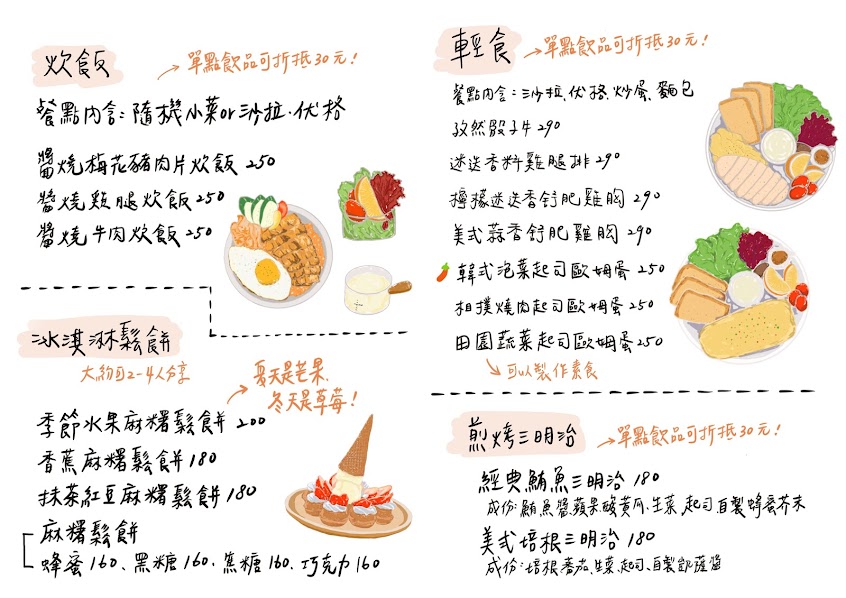 炊飯
單點飲品可折抵30元!
餐點內含:隨機小菜or沙拉、伏格
醬燒梅花豬肉片炊飯 250
醬燒雞腿炊飯 250
醬燒牛肉炊飯 250
冰淇淋鬆餅
大約可2-4人分享
夏天是芒果,
冬天是草莓!
季節水果麻糬鬆餅 200
香蕉麻糬鬆餅 180
抹茶紅豆麻糬鬆餅 180
麻糬鬆餅
蜂蜜 160、黑糖 160、焦糖 160、巧克力 160
輕食
單點飲品可折抵30元!
餐點內含:沙拉、伏格、炒蛋、麵包
孜然骰子牛 290
迷迭香料雞腿排 290
檸檬迷迭香舒肥雞胸 290
美式蒜香舒肥雞胸 290
韓式泡菜起司歐姆蛋 250
相撲燒肉起司歐姆蛋 250
田園蔬菜起司歐姆蛋 250
可以製作素食
煎烤三明治
單點飲品可折抵30元!
經典鮪魚三明治 180
成份:鮪魚醬、蘋果、酸黃瓜、生菜、起司、自製蜂蜜芥末
美式培根三明治 180
成份:培根、番茄、生菜、起司、自製凱薩醬